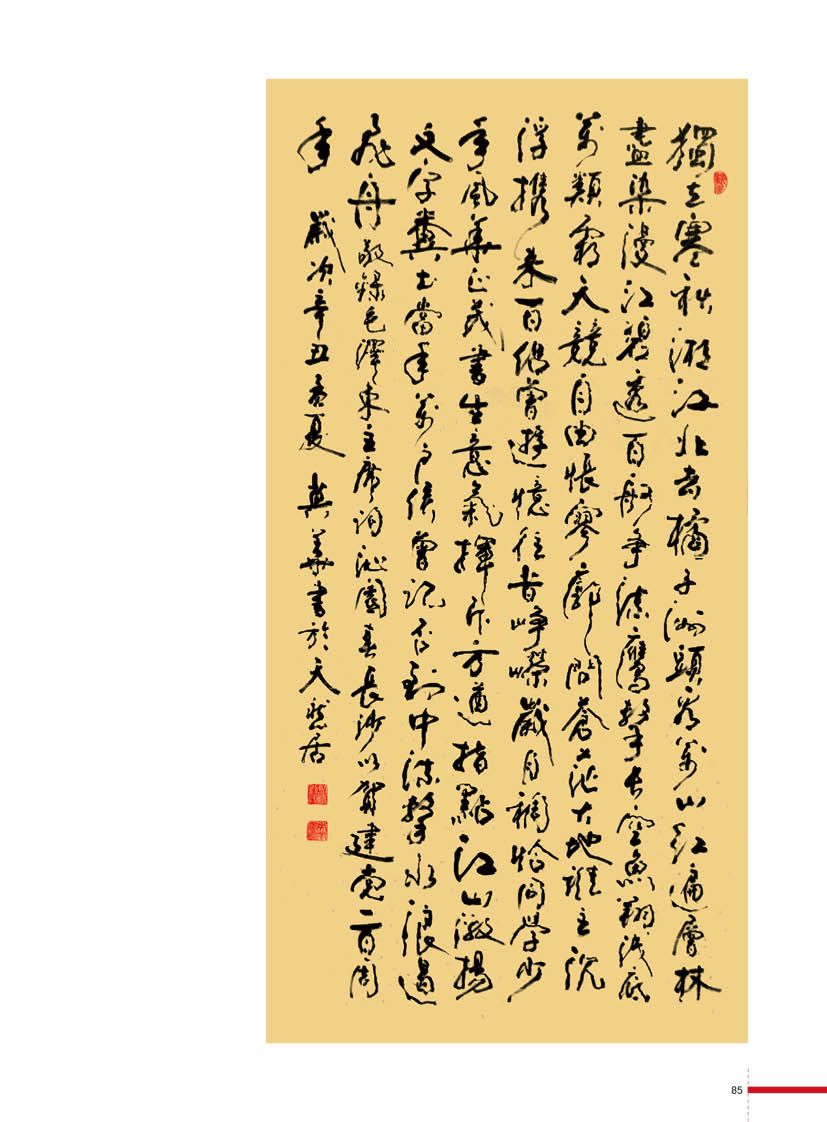 獨立寒秋湘江北去橘子洲頭看萬山紅遍層林
盡染漫江碧透百舸爭流鷹擊長空魚翔淺底
萬類霜天競自由悵寥廓問蒼茫大地誰主沉
浮攜來百侶曾遊憶往昔崢嶸歲月稠恰同學少
年風華正茂書生意氣揮斥方遒指點江山激揚
文字糞土當年萬戶侯曾記否到中流擊水浪遏
飛舟敬錄毛澤東主席詞沁園春長沙以賀建党一百周
年 歲次辛丑孟夏 英華書於天然居
85